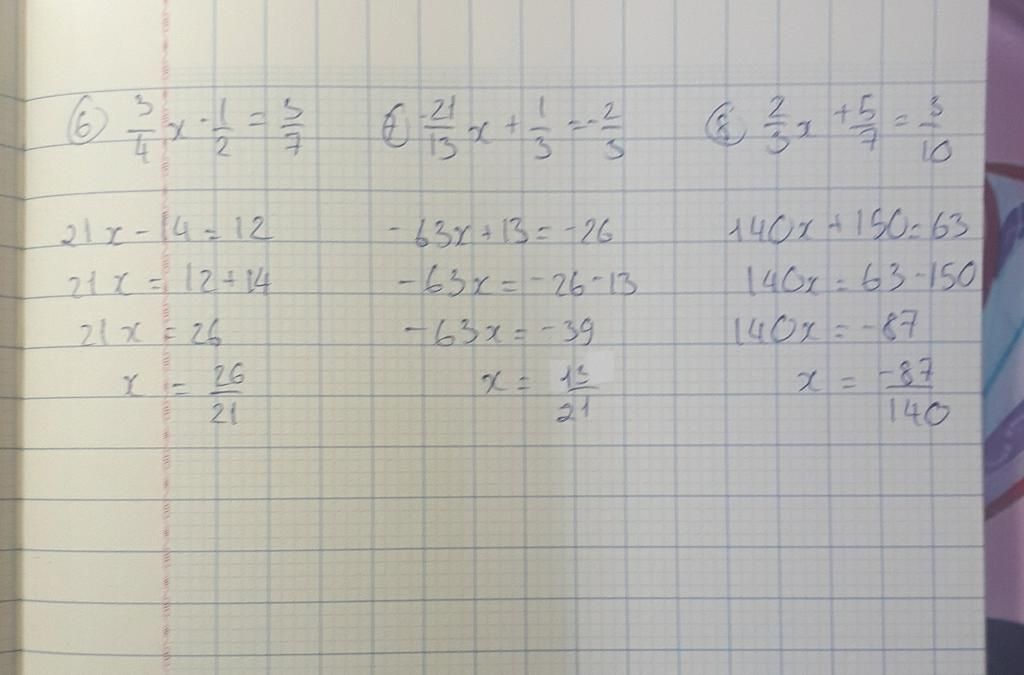 ⑥ 3/4 x - 1/2 = 3/7
21x - 14 = 12
21x = 12 + 14
21x = 26
x = 26/21
⑦ -21/13 x + 1/3 = -2/3
-63x + 13 = -26
-63x = -26 - 13
-63x = -39
x = 13/21
⑧ 2/3 x + 5/7 = 3/10
140x + 150 = 63
140x = 63 - 150
140x = -87
x = -87/140